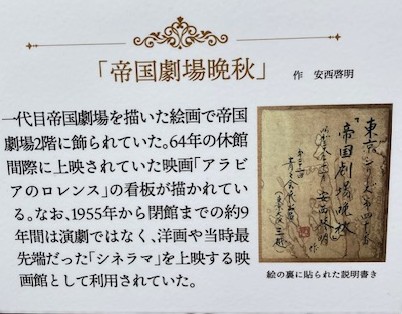 「帝国劇場晩秋」 作 安西啓明
一代目帝国劇場を描いた絵画で帝国
劇場2階に飾られていた。64年の休館
間際に上映されていた映画「アラビ
アのロレンス」の看板が描かれてい
る。なお、1955年から閉館までの約9
年間は演劇ではなく、洋画や当時最
先端だった「シネラマ」を上映する映
画館として利用されていた。
東京シリーズ
「帝国劇場晩秋」
安西啓明
作
絵の裏に貼られた説明書き